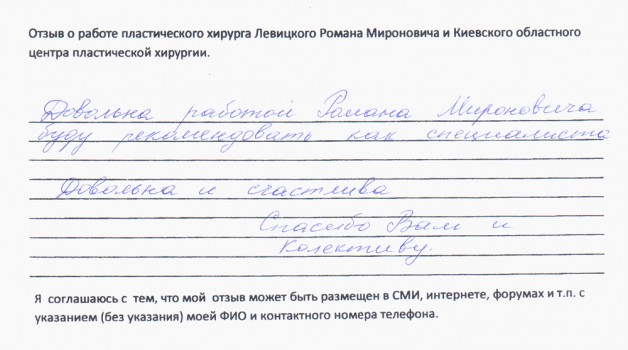 Отзыв о работе пластического хирурга Левицкого Романа Мироновича и Киевского областного
центра пластической хирургии.
Довольна работой Романа Мироновича
буду рекомендовать как специалиста
Довольна и счастлива
Спасибо Вам и
Колективу.
Я соглашаюсь с тем, что мой отзыв может быть размещен в СМИ, интернете, форумах и т.п. с
указанием (без указания) моей ФИО и контактного номера телефона.